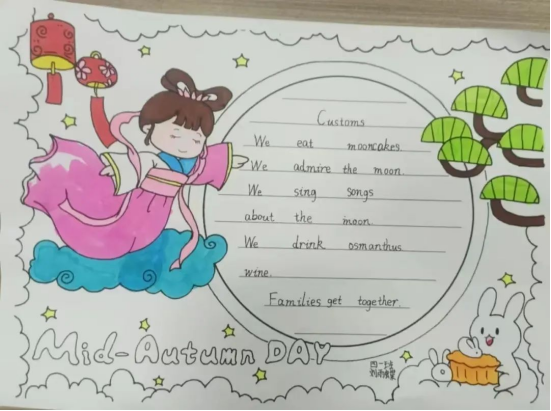 Customs
We eat mooncakes.
We admire the moon.
We sing songs
about the moon.
We drink osmanthus
wine.
Families get together.
Mid-Autumn DAY
四一班